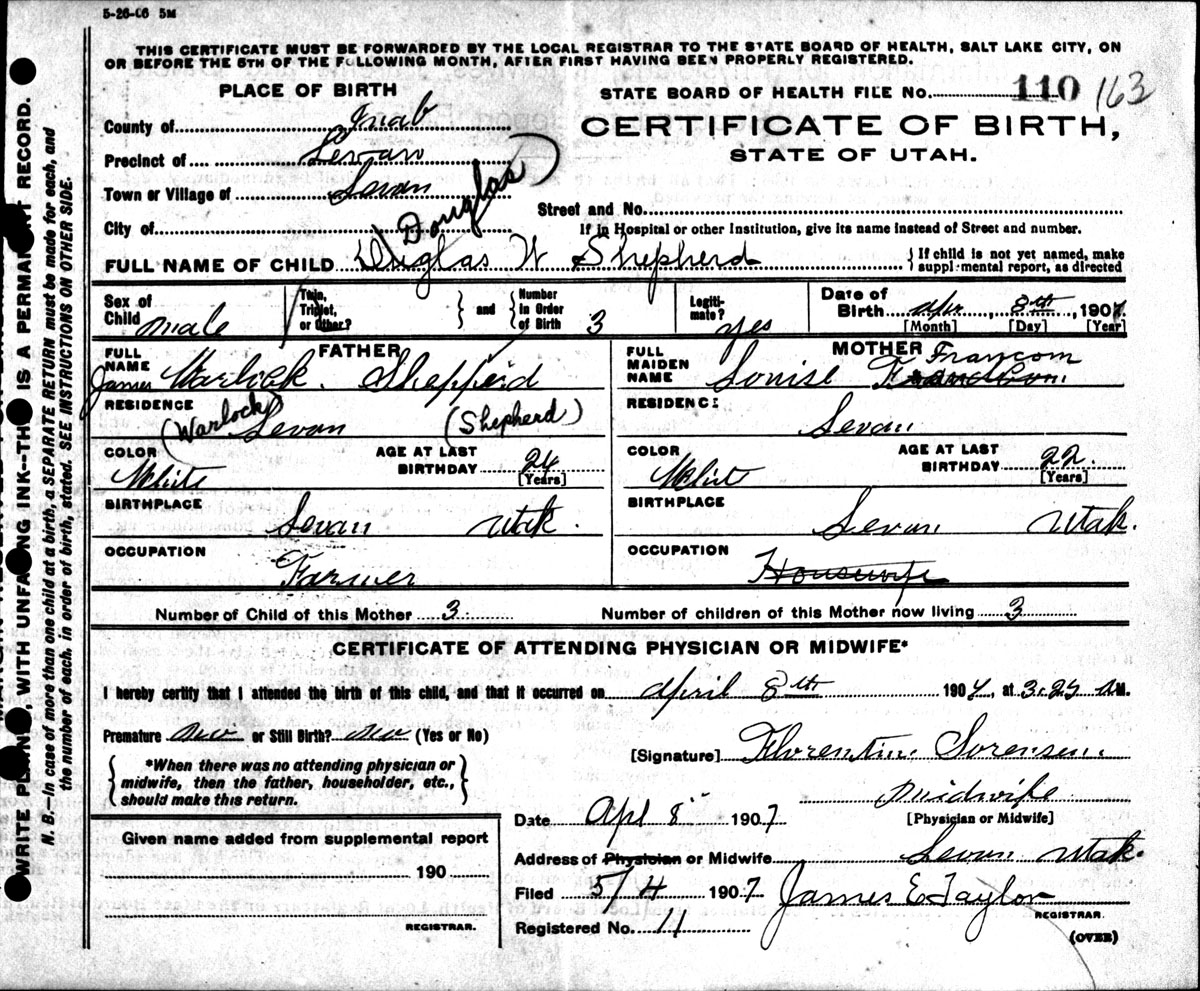 5-26-06 5M
THIS CERTIFICATE MUST BE FORWARDED BY THE LOCAL REGISTRAR TO THE STATE BOARD OF HEALTH, SALT LAKE CITY, ON
OR BEFORE THE 5TH OF THE FOLLOWING MONTH, AFTER FIRST HAVING BEEN PROPERLY REGISTERED.
PLACE OF BIRTH
STATE BOARD OF HEALTH FILE No. 110 163
County of Juab
CERTIFICATE OF BIRTH,
Precinct of Levan
STATE OF UTAH.
Town or Village of Levan
Street and No.
City of
If in Hospital or other Institution, give its name instead of Street and number.
Douglas
FULL NAME OF CHILD Duglas W Shepherd
If child is not yet named, make
supplemental report, as directed
Sex of Child male
Twin, Triplet, or Other? and Number in Order of Birth 3
Legitimate? yes
Date of Birth Apr 8th, 1907
[Month] [Day] [Year]
FATHER
FULL NAME James Warlock Sheppird
MOTHER
FULL MAIDEN NAME Louise Francom
RESIDENCE Levan
(Warlock) (Shepherd)
RESIDENCE Levan
COLOR White
AGE AT LAST BIRTHDAY 24 [Years]
COLOR White
AGE AT LAST BIRTHDAY 22 [Years]
BIRTHPLACE Levan Utah.
BIRTHPLACE Levan Utah.
OCCUPATION Farmer
OCCUPATION Housewife
Number of Child of this Mother 3
Number of children of this Mother now living 3
CERTIFICATE OF ATTENDING PHYSICIAN OR MIDWIFE*
I hereby certify that I attended the birth of this child, and that it occurred on April 8th 1907, at 3.25 AM.
Premature no or Still Birth? no (Yes or No)
[Signature] Florentine Sorensen
*When there was no attending physician or
midwife, then the father, householder, etc.,
should make this return.
Midwife
[Physician or Midwife]
Date Apl 8" 1907
Given name added from supplemental report
190
REGISTRAR.
Address of Physician or Midwife Levan Utah.
Filed 5/4 1907 James E Taylor
REGISTRAR.
Registered No. 11
(OVER)
WRITE PLAINLY, WITH UNFADING INK--THIS IS A PERMANENT RECORD.
N. B.--In case of more than one child at a birth, a SEPARATE RETURN must be made for each, and
the number of each, in order of birth, stated. SEE INSTRUCTIONS ON OTHER SIDE.